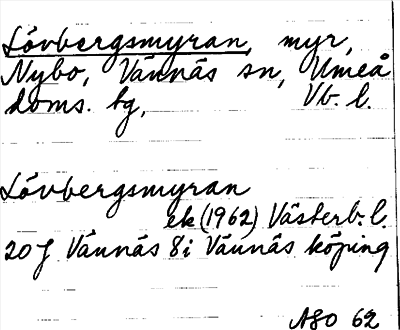 Lövbergsmyran, myr,
Nybo, Vännäs sn, Umeå
doms. tg, Vb. l.
Lövbergsmyran
ek (1962) Västerb. l.
20 J Vännäs 8 i Vännäs köping
ASO 62